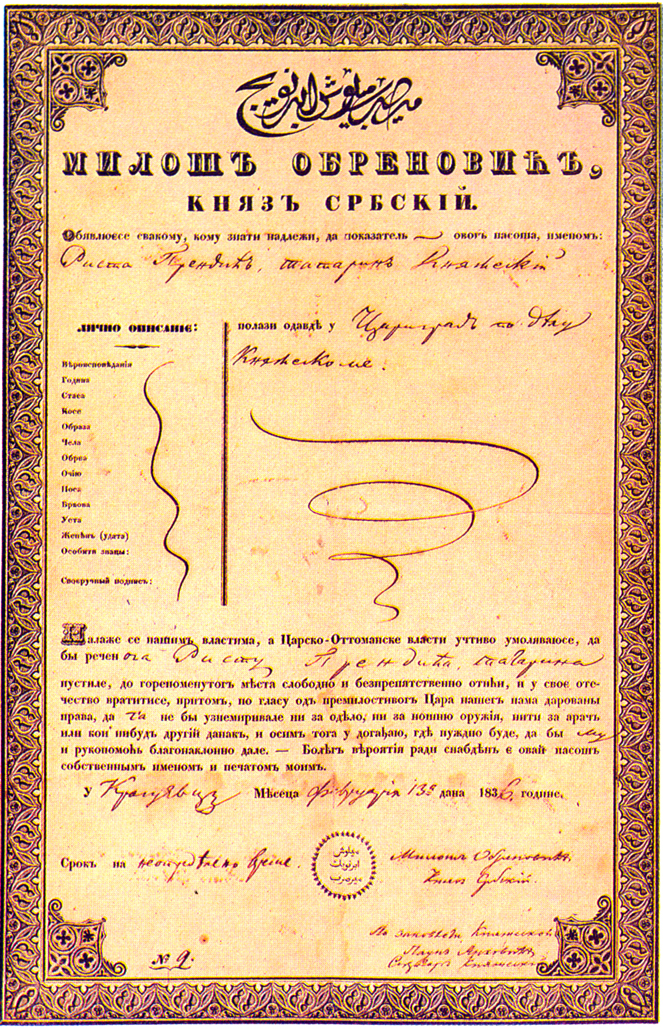 ميرصرب ميلوش ابرنويچ
МИЛОШЪ ОБРЕНОВИЋЪ,
КНЯЗЪ СРБСКІЙ.
Обявлюєсе свакому, кому знати надлежи, да показатель овогъ пасоша, именомъ:
Риста Прендићъ, татаринъ Княжескій
ЛИЧНО ОПИСАНІЕ:
полази одавдѣ у Цариградъ по дѣлу
Княжескоме.
Вѣроисповѣданія
Година
Стаса
Косе
Образа
Чела
Обрва
Очію
Носа
Бркова
Уста
Женѣнъ (удата)
Особити знацы:
Своеручный подпись:
Налаже се нашимъ властима, а Царско-Оттоманске власти учтиво умоляваюсе, да
бы реченога Ристу Прендића, татарина
пустиле, до гореноменутогъ мѣста слободно и безпрепятственно отићи, и у свое оте-
чество вратитисе, притомъ, по гласу одъ премилостивогъ Цара нашегъ нама дарованы
права, да га не бы узнемиривале ни за одѣло, ни за ношню оружія, нити за арачъ
или кои нибудь другій данакъ, и осимъ тога у догађаю, гдѣ нуждно буде, да бы му
и рукопомоћь благонаклонно дале. — Болѣгъ вѣроятія ради снабдѣнъ є овай пасошъ
собственнымъ именомъ и печатомъ моимъ.
У Крагуєвцу Мѣсеца Февруарія 13г дана 1836. године.
Срокъ на неопредѣлено време.
ميلوش
ابرنويك
ميرصرب
Милошъ Обреновићъ
Князь Србскій.
По заповѣди Княжеской
№ 2.